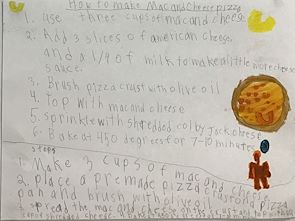 How to make Mac and Cheese pizza
1. use three cups of mac and chees
2. Add 3 slices of american cheese
and a 1/4 of milk to make a little more cheese
sauce.
3. Brush pizza crust with olive oil
4. Top with mac and cheese
5. sprinkle with shredded colby jack cheese
6. Bake at 450 degrees for 7-10 minutes
steps
1. Make 3 cups of mac and cheese
2. place a premade pizza crust on
pan and brush with olive oil
3. spread the mac and cheese
shredded cheese